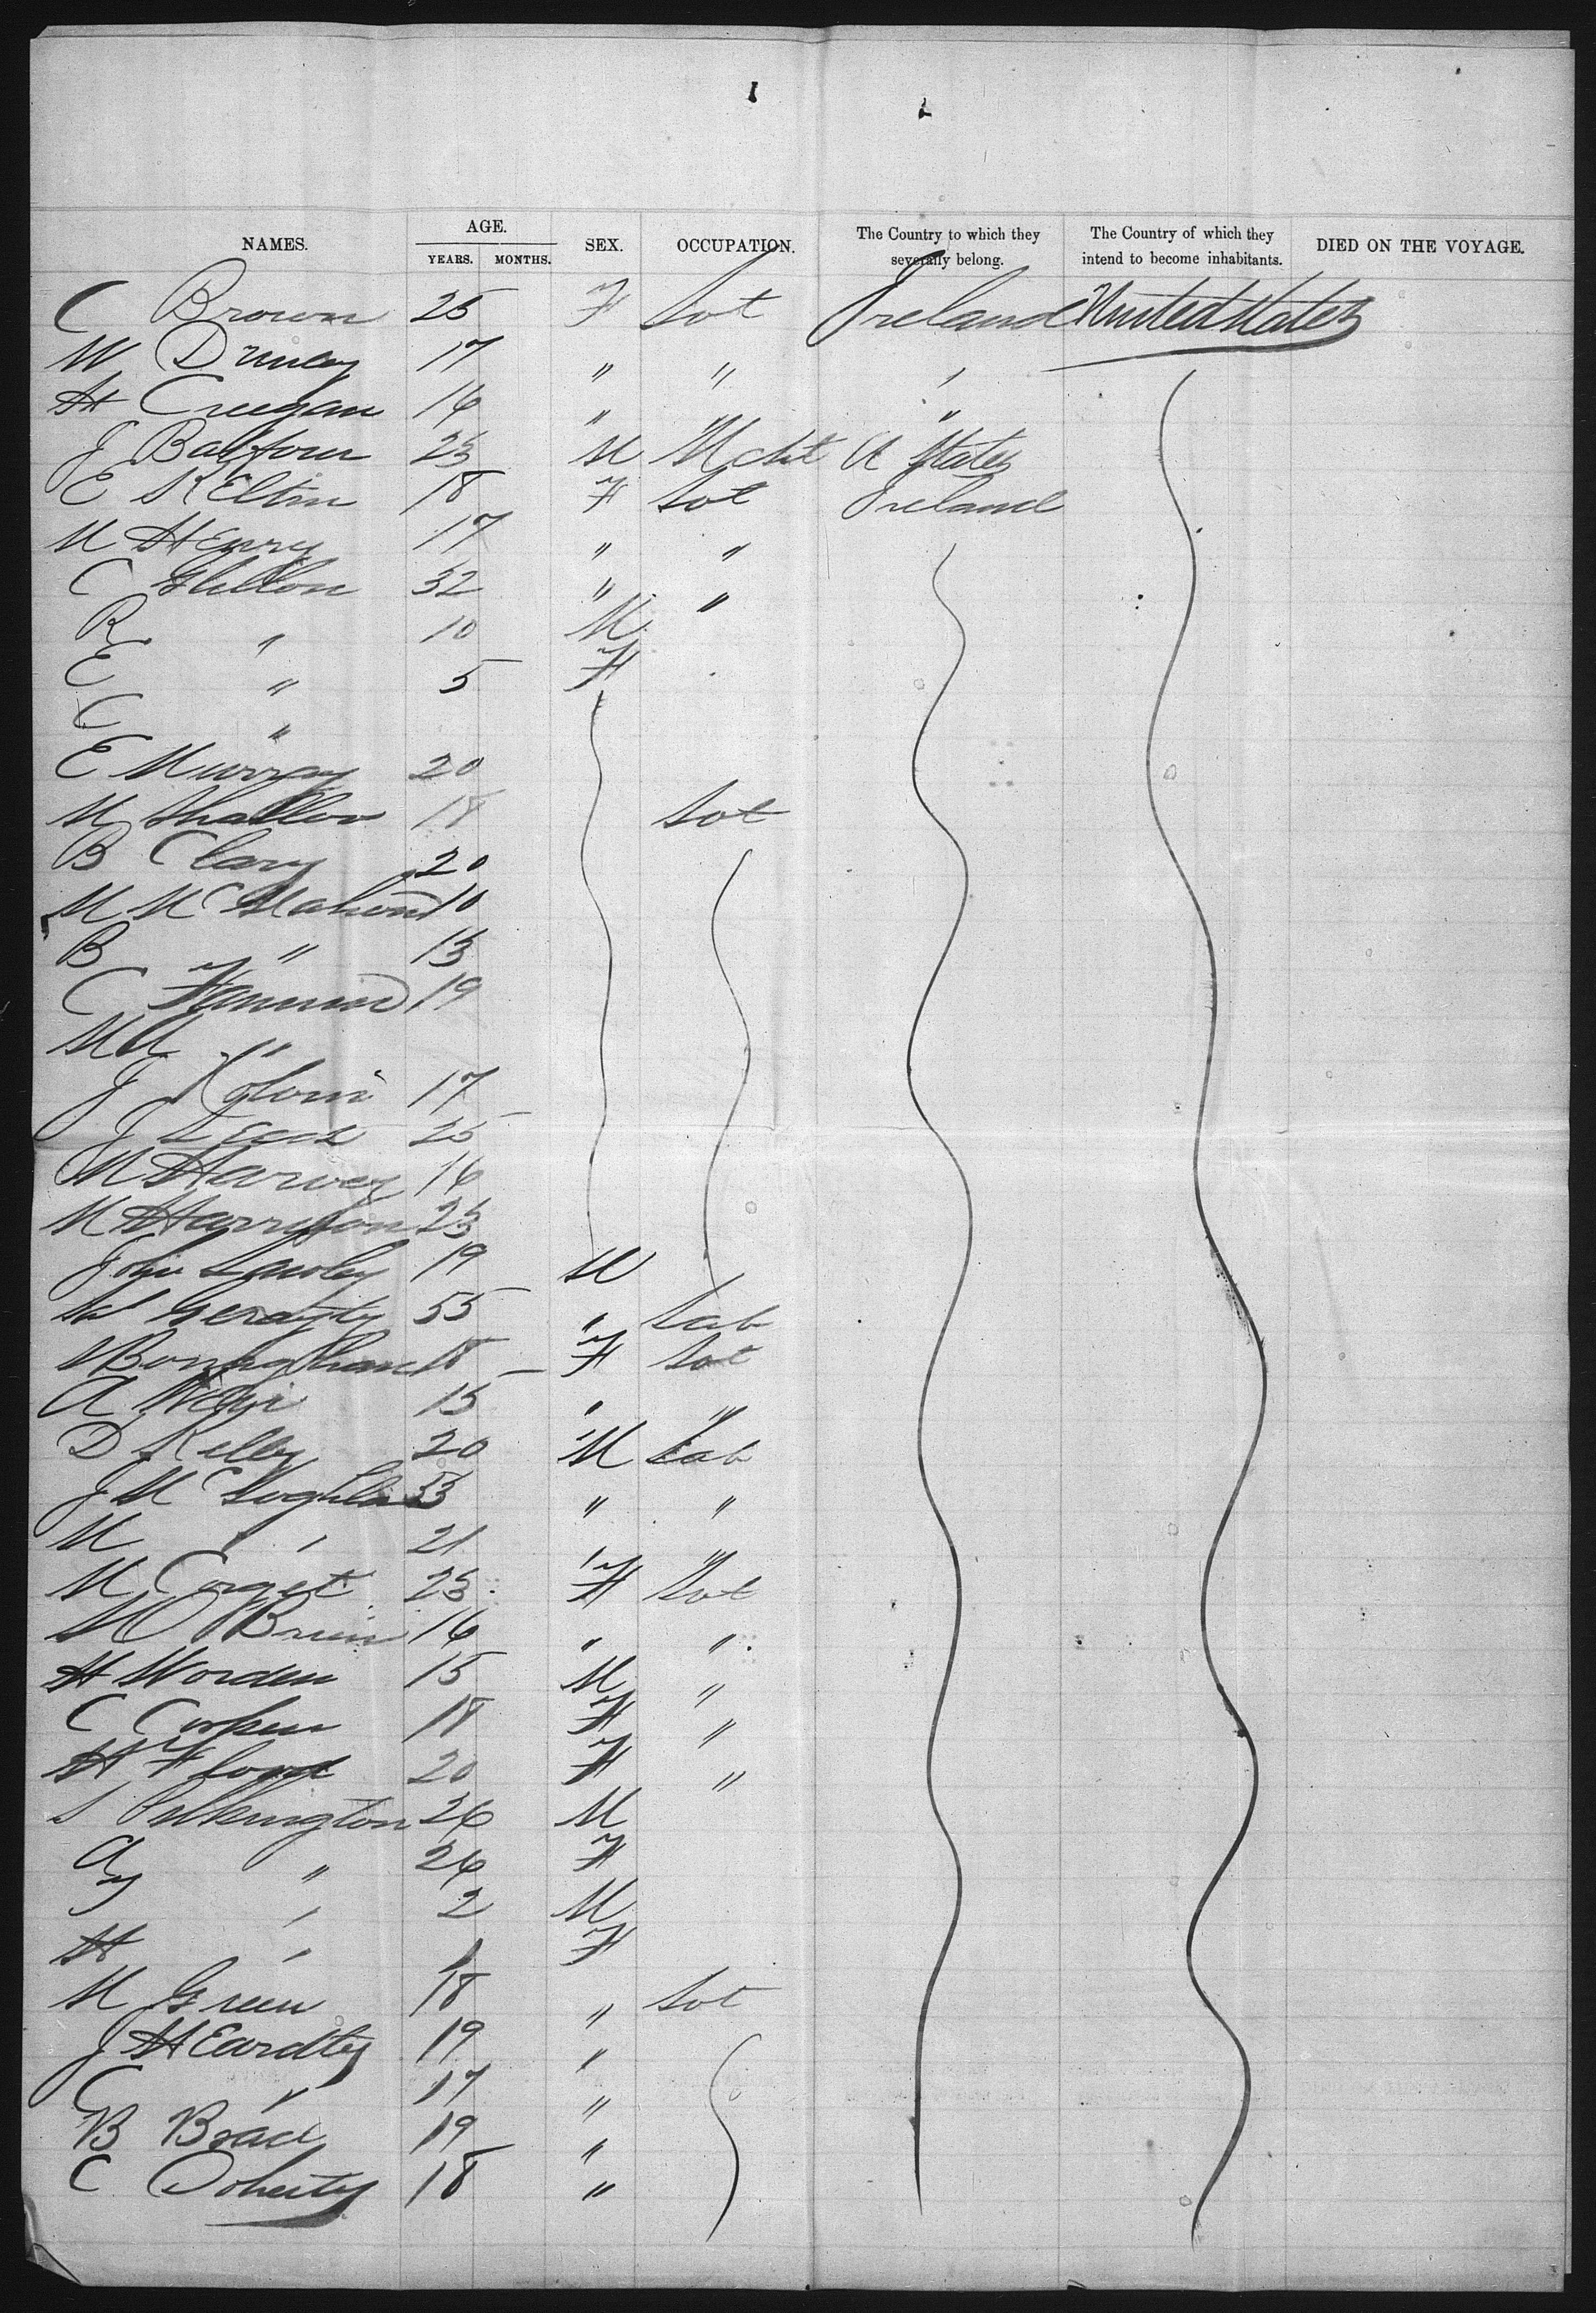 NAMES. AGE. YEARS. MONTHS. SEX. OCCUPATION. The Country to which they severally belong. The Country of which they intend to become inhabitants. DIED ON THE VOYAGE.
C Brown 25 F Sot Ireland United States
M 17 " " "
H Creegan 16 " " "
J Balfour 23 M Mcht U States
E Kelton 18 F Sot Ireland
M Henry 17 " "
C 32 " "
R " 10 M
E " 5 F
C "
E Murray 20
M Shallow 18 Sot
B Clary 20
M McMahon 10
B " 13
C Fannon 19
M A "
J 17
J 25
M Harvey 16
M Harrison 23
John Lawley 19 M
W Geraghty 55 " Lab
18 F Sot
A Weir 15 " "
D Kelly 20 M Lab
J McLoghlin 53 " "
M " 21 " "
M 23 F Sot
M O Brien 16 " "
H Worden 15 M "
C 18 F "
H Flood 20 F "
S Pilkington 26 M
A " 26 F
J " 2 M
H " 1 F
M Green 18 " Sot
J Heardty 19 "
C " 17 "
B 19 "
C Doherty 18 "